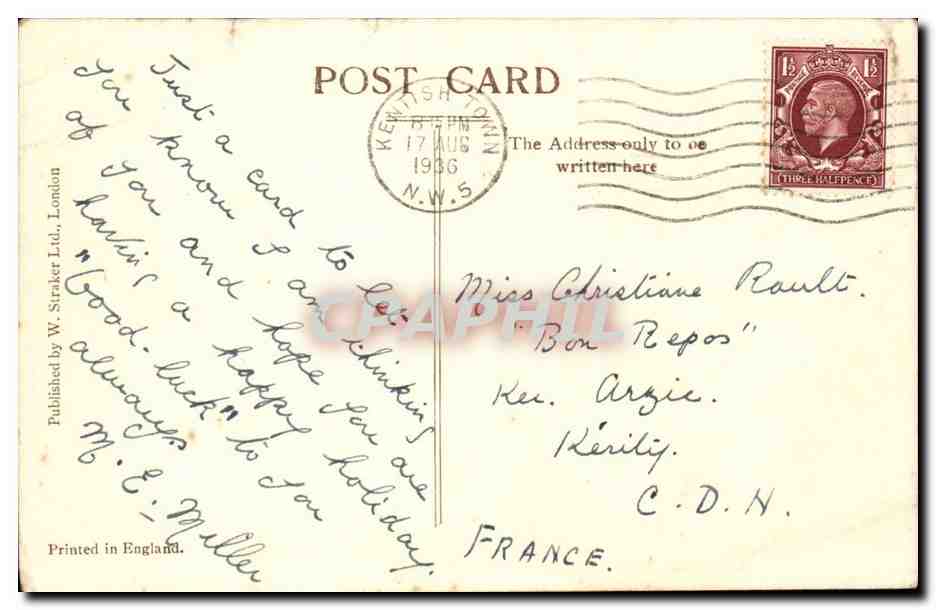 POST CARD
KENTISH TOWN
8-15 PM
17 AUG
1936
N.W.5
1½ 1½
POSTAGE REVENUE
THREE HALFPENCE
The Address only to be
written here
Published by W. Straker Ltd., London
Just a card to let
you know I am thinking
of you and hope you are
having a happy holiday.
"Good-luck" to you
always.
M. E. Miller
Printed in England.
Miss Christiane Rault.
"Bon Repos"
Ker. Arzic.
Kérity.
C.D.N.
FRANCE.
CPAPHIL